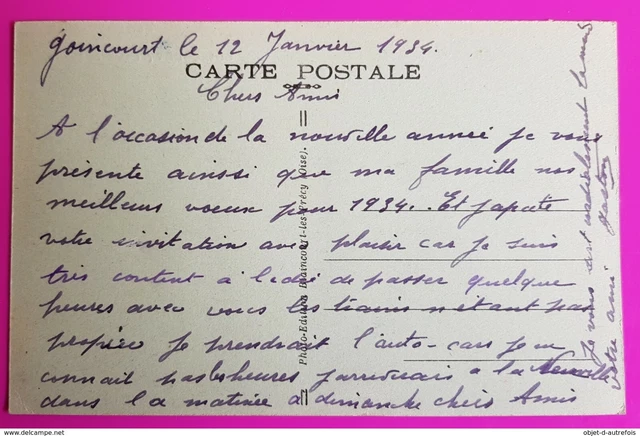 Goincourt le 12 Janvier 1934.
CARTE POSTALE
Chers Amis
A l'occasion de la nouvelle année je vous
présente ainsi que ma famille nos
meilleurs voeux pour 1934. Et j'apcete
votre invitation avec plaisir car je suis
très content à l'idée de passer quelque
heures avec vous les trains n'étant pas
propice je prendrait l'auto-cars je n
connait pas les heures j'arriverais a la
dans la matinée a dimanche chers Amis
Je vous cordialement la main
votre ami Gaston
Photo-Edition Blaincourt-les-Précy (Oise).
delcampe.net
objet-d-autrefois